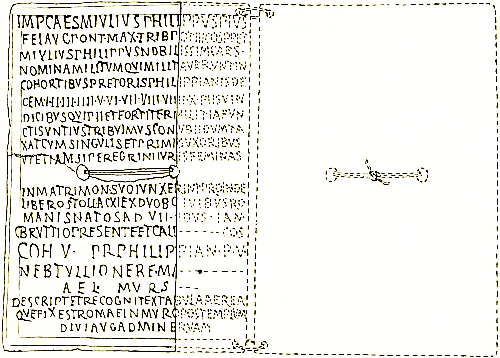 IMPCAESMIVLIVSPHILIPPVSPIVS
FELAVGPONTMAXTRIBPOTIIICOSPPET
MIVLIVSPHILIPPVSNOBILISSIMCAES
NOMINAMILITVMQVIMILITAVERVNTIN
COHORTIBVSPRETORISPHILIPPIANISDE
CEM·I·II·III·IIII·V·VI·VII·VIII·VIIII·X·PIISVIN
DICIBVSQVIPIIETFORTITERMILITIAFVN
CTISVNTIVSTRIBVIMVSCONVBIIDVMTA
XATCVMSINGVLISETPRIMISVXORIBVS
VTETIAMSIPEREGRINIIVRISFEMINAS
INMATRIMONSVOIVNXERINTPROINDE
LIBEROSTOLLACXIEXDVOBCIVIBVSRO
MANISNATOSAD VII·IDVS·IAN·
CBRVTTIOPRESENTEETCALL COS
COH V· PRPHILIPPIAN·P·V·
NEBTVLLIONEREMA
AEL MVRS
DESCRIPTETRECOGNITEXTABVLAAEREA
QVEFIXESTROMAEINMVROPOSTEMPLVM
DIVIAVGADMINERVAM